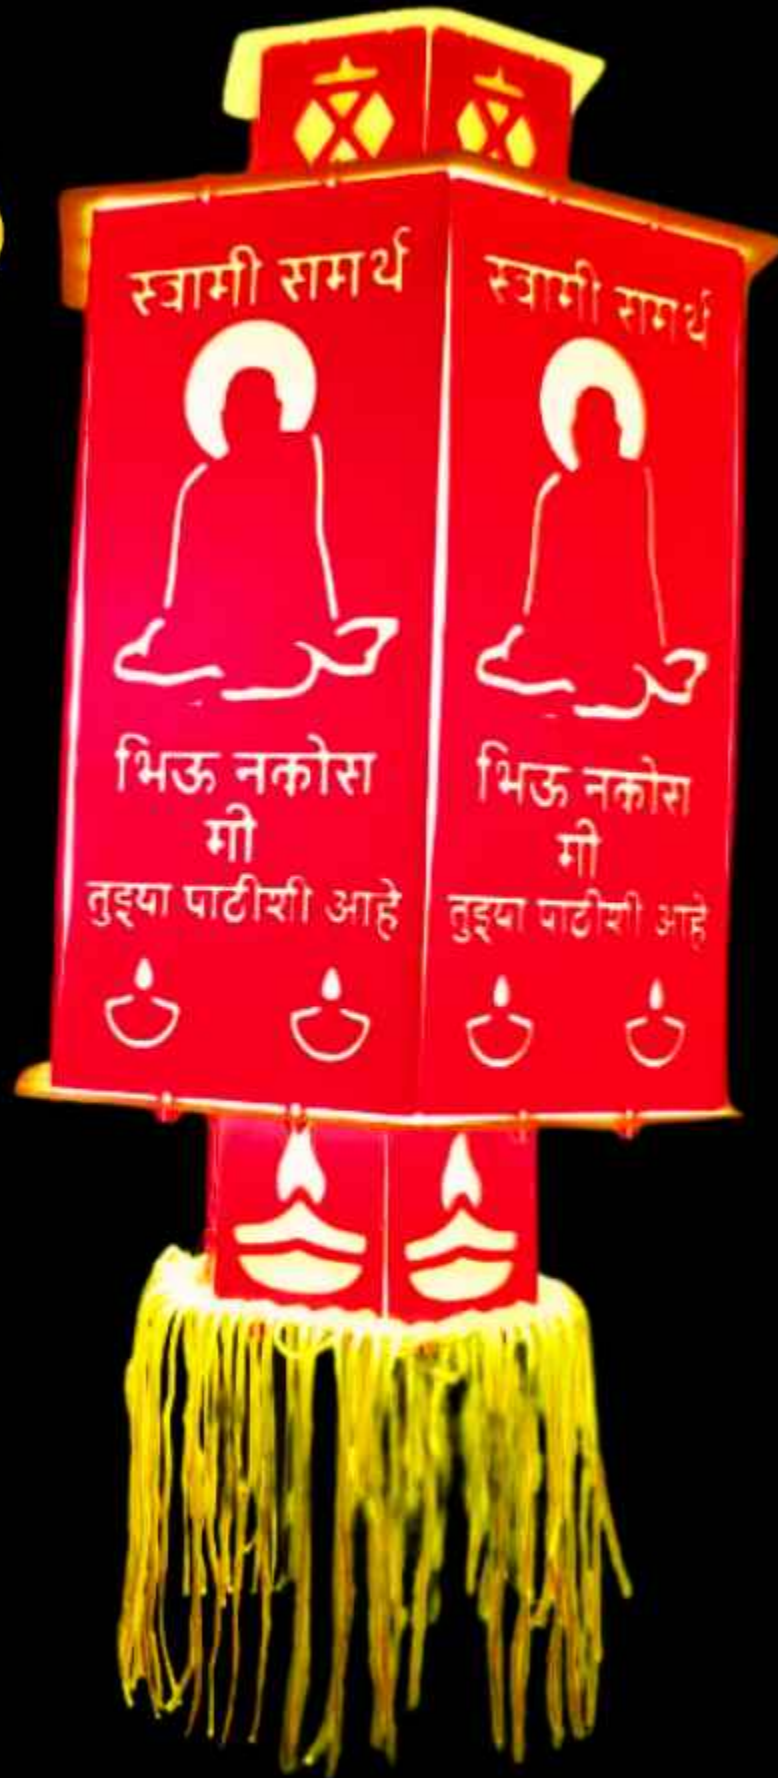 स्वामी समर्थ
भिऊ नकोस
मी
तुझ्या पाठीशी आहे
स्वामी समर्थ
भिऊ नकोस
मी
तुझ्या पाठीशी आहे